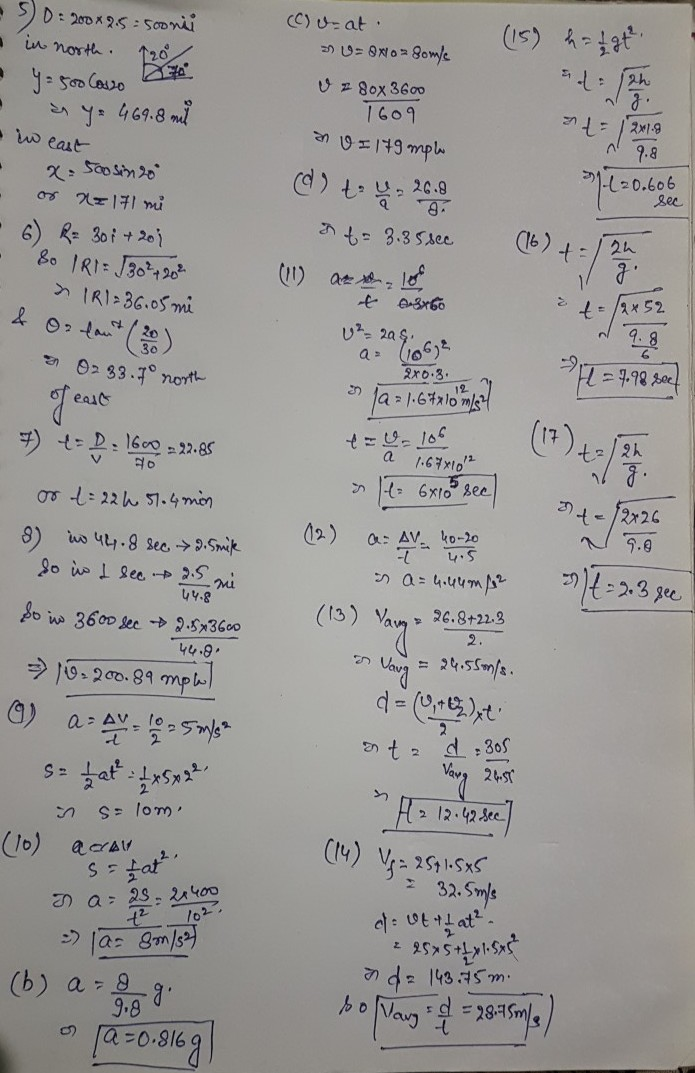 5) D = 200 × 2.5 = 500 mi
in north.
20°
70°
y = 500 Cos20
⇒ y = 469.8 mi
in east
x = 500 sin 20°
or x = 171 mi
6) R = 30i + 20j
So |R| = √30²+20²
⇒ |R| = 36.05 mi
& θ = tan⁻¹ (20/30)
⇒ θ = 33.7° north
of east
7) t = D/V = 1600/70 = 22.85
or t = 22h 51.4 min
8) in 44.8 sec → 2.5 mile
So in 1 sec → 2.5/44.8 mi
So in 3600 sec → 2.5×3600/44.8.
⇒ v = 200.89 mph
(9) a = ΔV/t = 10/2 = 5 m/s²
S = ½at² = ½×5×2²
⇒ S = 10m.
(10)
S = ½at².
⇒ a = 2S/t² = 2×400/10².
⇒ a = 8m/s²
(b) a = 8/9.8 g.
⇒ a = 0.816g
(C) v = at.
⇒ v = 8×10 = 80m/s
v = 80×3600/1609
⇒ v = 179 mph
(d) t = v/a = 26.8/8.
⇒ t = 3.35 sec
(11)
v² = 2as.
a = (10⁶)²/2×0.3.
⇒ a = 1.67×10¹² m/s²
t = v/a = 10⁶/1.67×10¹²
⇒ t = 6×10⁵ sec
(12) a = ΔV/t = 40-20/4.5
⇒ a = 4.44 m/s²
(13) Vavg = 26.8+22.3/2.
⇒ Vavg = 24.55 m/s.
d = (v₁+v₂/2)×t.
⇒ t = d/Vavg = 305/24.55
⇒ t = 12.42 sec
(14) Vf = 25+1.5×5
= 32.5 m/s
d = vt + ½at².
= 25×5+½×1.5×5²
⇒ d = 143.75 m.
so Vavg = d/t = 28.75 m/s
(15) h = ½gt².
⇒ t = √2h/g.
⇒ t = √2×1.8/9.8
⇒ t = 0.606 sec
(16) t = √2h/g.
⇒ t = √2×52/9.8/6
⇒ t = 7.98 sec
(17) t = √2h/g.
⇒ t = √2×26/9.8
⇒ t = 2.3 sec